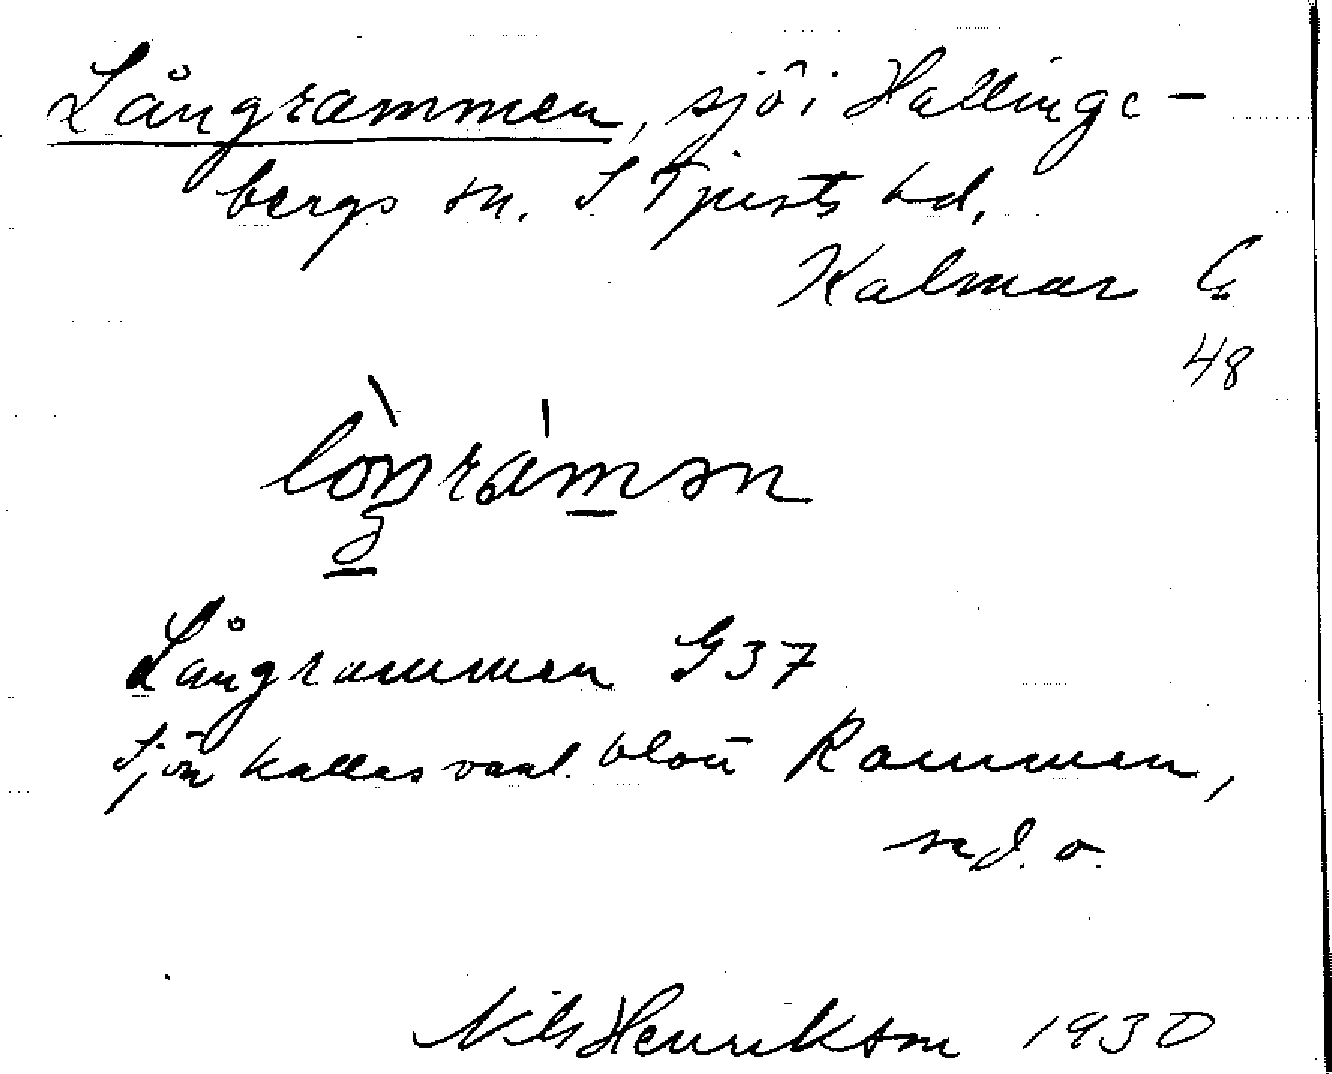 Långrammen, sjö i Hallinge-
bergs sn. S Tjusts hd,
Kalmar l.
48
lòŋrámən
Långrammen G 37
Sjön kallas vanl. blott Rammen,
se d. o.
Nils Henrikson 1930